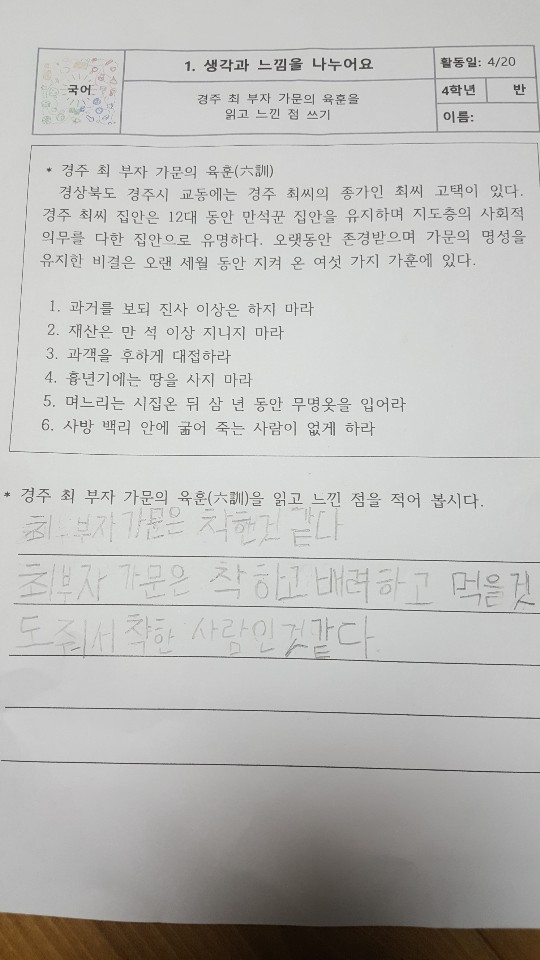 국어
1. 생각과 느낌을 나누어요
활동일: 4/20
경주 최 부자 가문의 육훈을
읽고 느낀 점 쓰기
4학년 반
이름:
* 경주 최 부자 가문의 육훈(六訓)
경상북도 경주시 교동에는 경주 최씨의 종가인 최씨 고택이 있다.
경주 최씨 집안은 12대 동안 만석꾼 집안을 유지하며 지도층의 사회적
의무를 다한 집안으로 유명하다. 오랫동안 존경받으며 가문의 명성을
유지한 비결은 오랜 세월 동안 지켜 온 여섯 가지 가훈에 있다.
1. 과거를 보되 진사 이상은 하지 마라
2. 재산은 만 석 이상 지니지 마라
3. 과객을 후하게 대접하라
4. 흉년기에는 땅을 사지 마라
5. 며느리는 시집온 뒤 삼 년 동안 무명옷을 입어라
6. 사방 백리 안에 굶어 죽는 사람이 없게 하라
* 경주 최 부자 가문의 육훈(六訓)을 읽고 느낀 점을 적어 봅시다.
최부자 가문은 착핸것 같다
최부자 가문은 착하고 배려하고 먹을것
도 줘서 착한 사람인것같다.